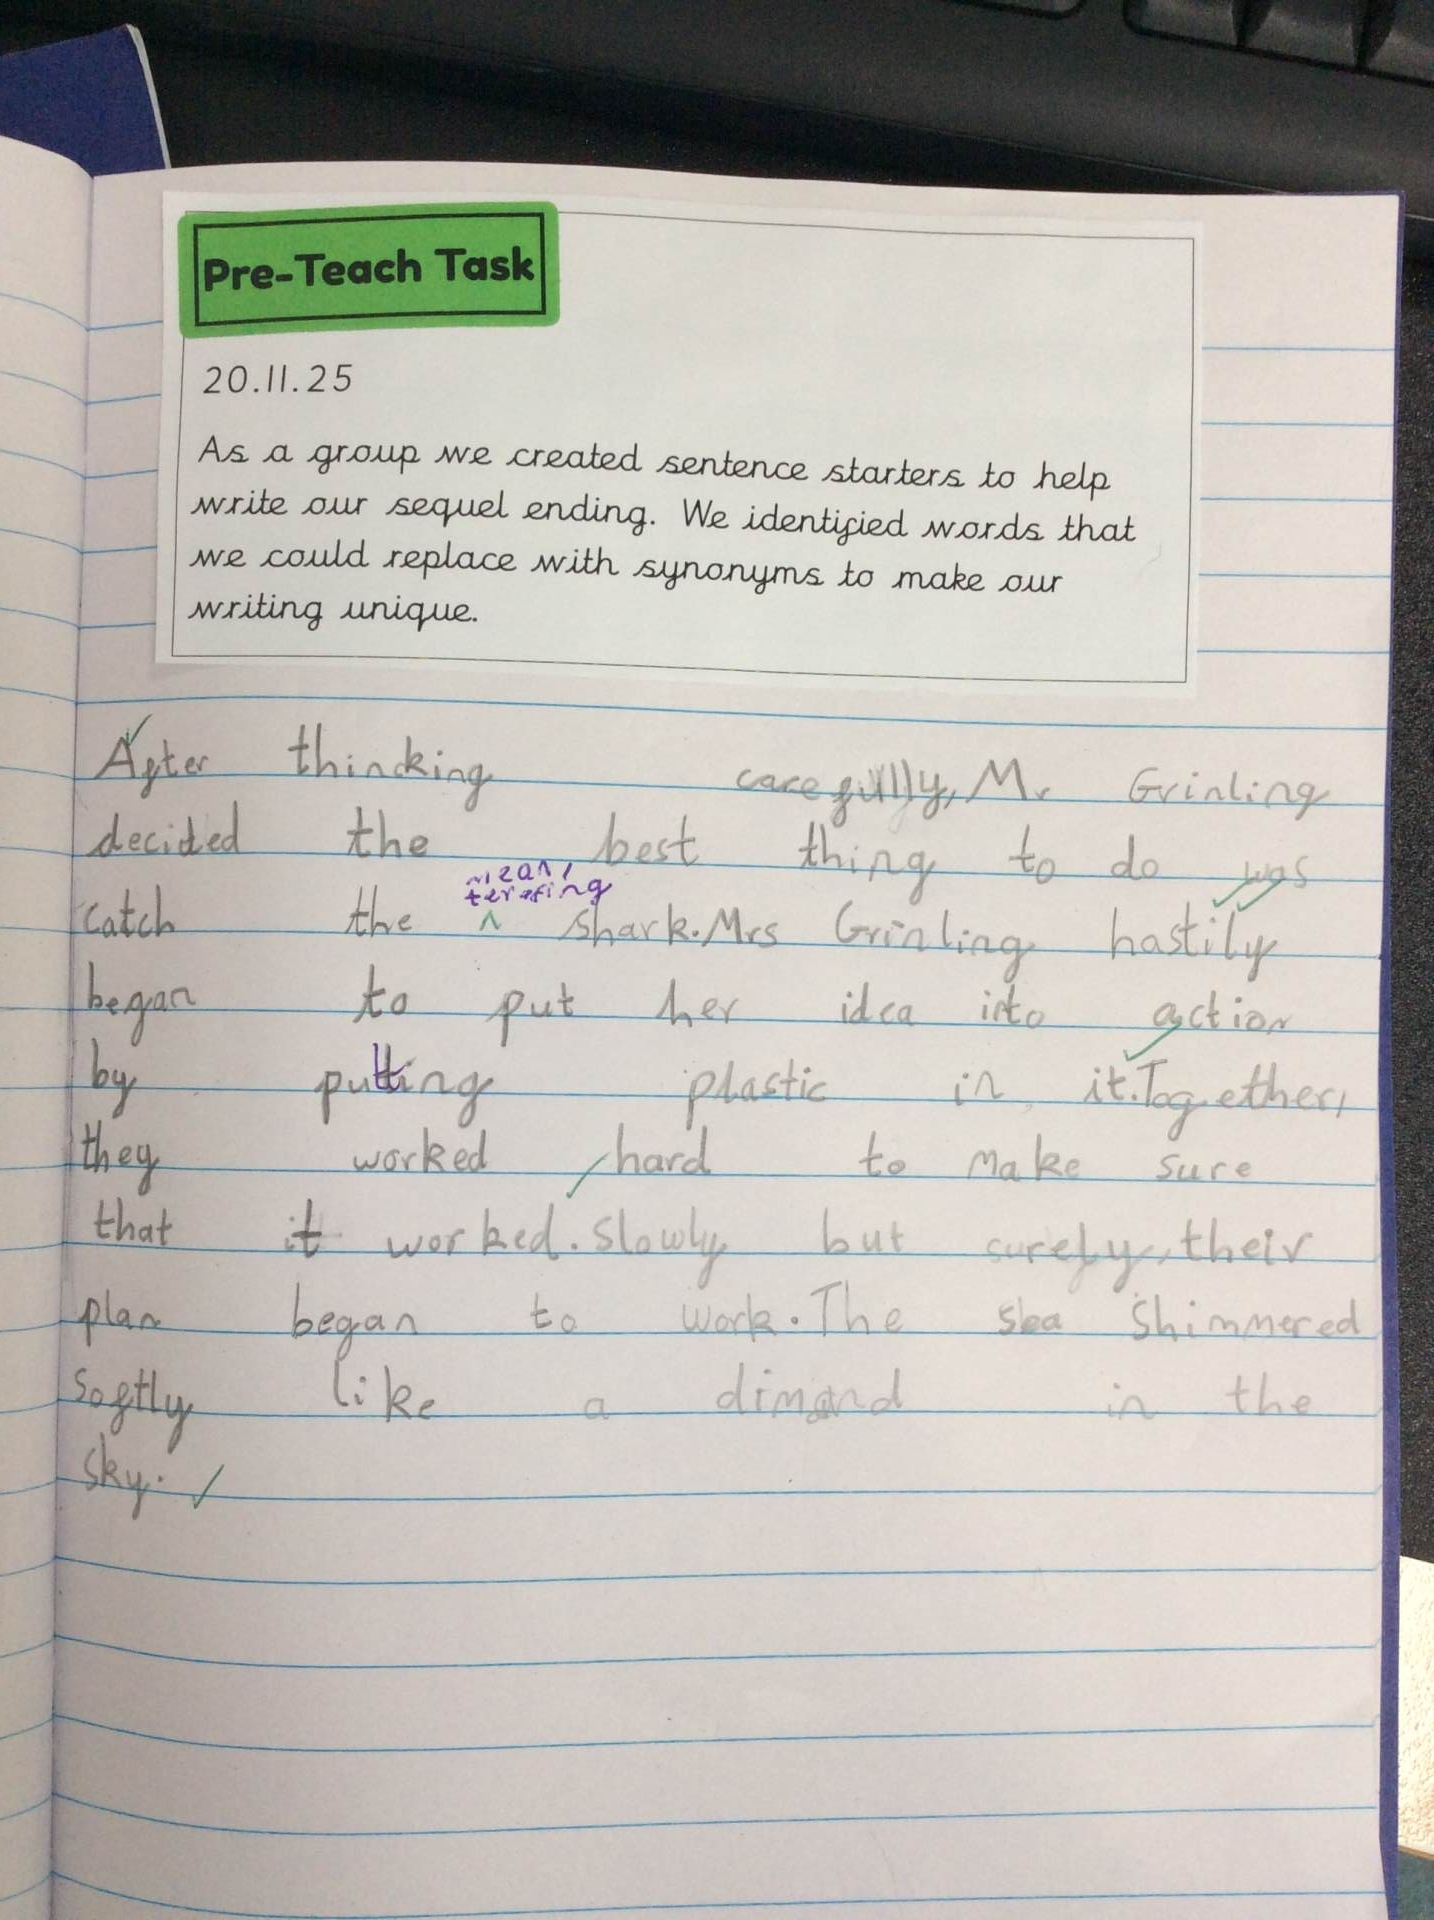 Pre-Teach Task
20.11.25
As a group we created sentence starters to help
write our sequel ending. We identified words that
we could replace with synonyms to make our
writing unique.
After thincking carefully, Mr Grinling
decided the best thing to do was
mean,
terefing
catch the ^ shark. Mrs Grinling hastily
began to put her idea into action
by putting plastic in it. Together,
they worked hard to make sure
that it worked. Slowly but surely, their
plan began to work. The sea shimmered
softly like a dimand in the
sky.